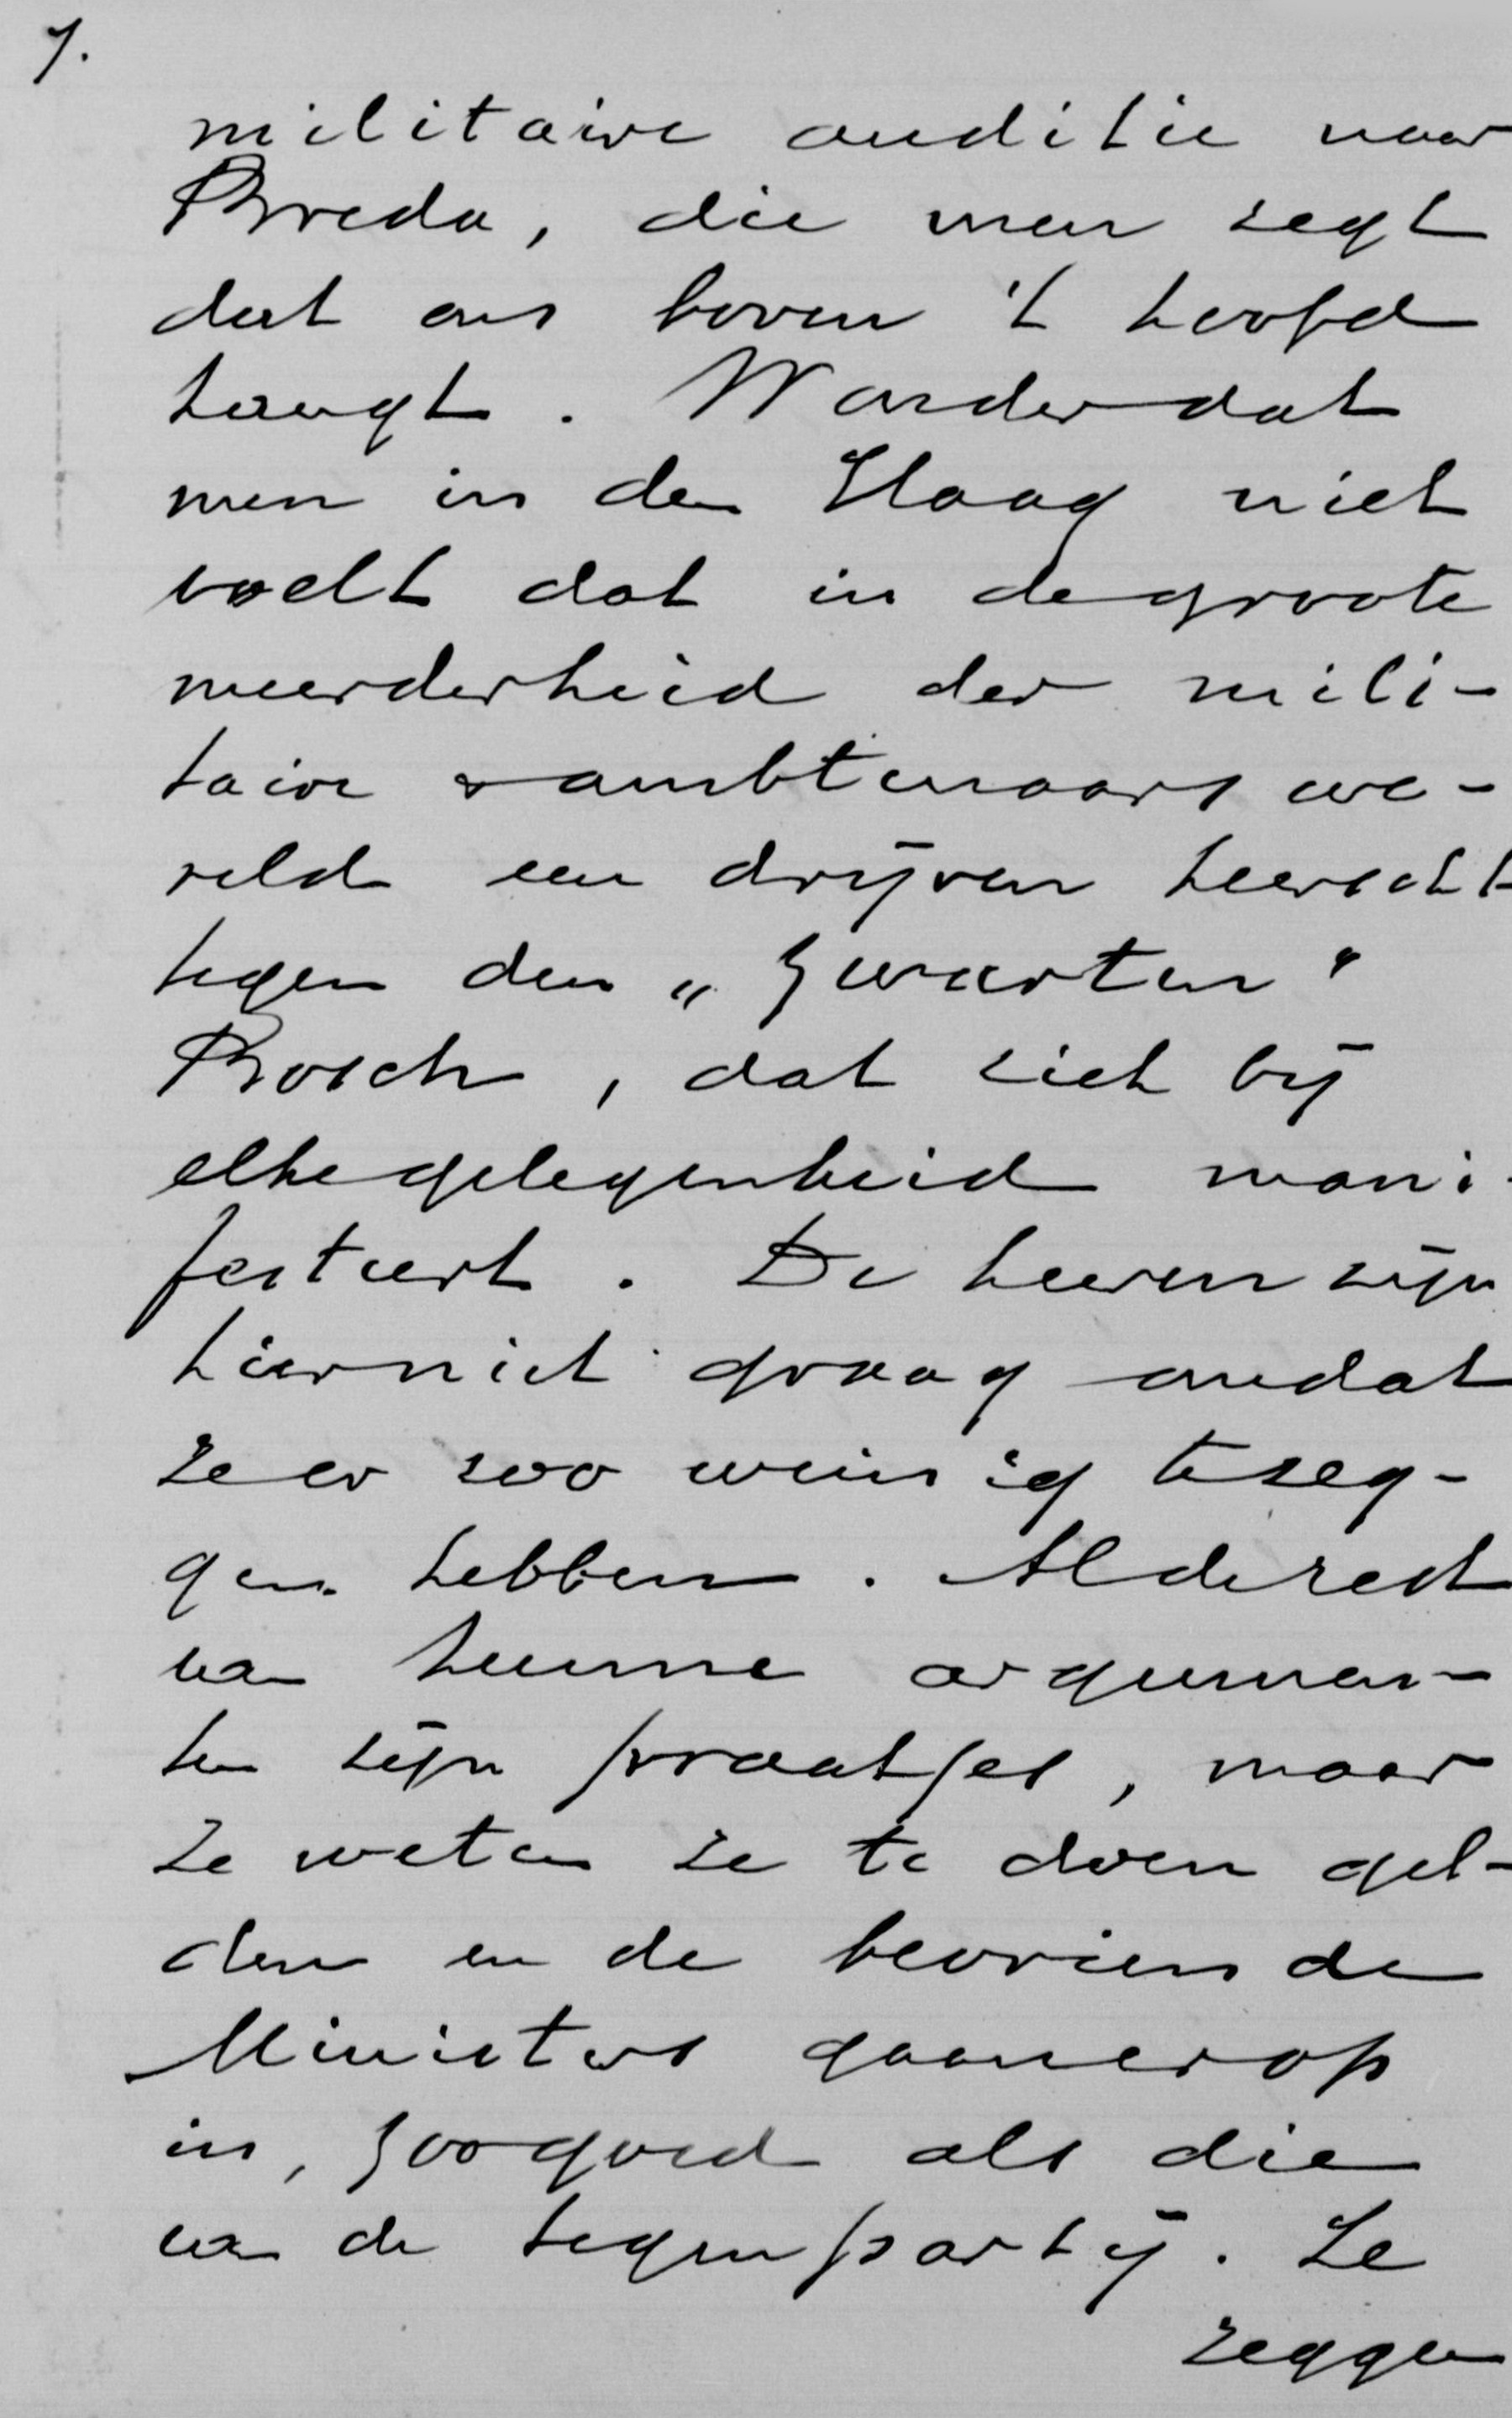 7.
militaire auditie naar
Breda, die men zegt
dat ons boven 't hoofd
hangt. Wonder dat
men in den Haag niet
voelt dat in de groote
meerderheid der mili-
taire & ambtenaars we-
reld een drijven heerscht
tegen den „Zwarten"
Bosch, dat zich bij
elke gelegenheid mani-
festeert. De heeren zijn
hier niet graag omdat
ze er zoo weinig te zeg-
gen hebben. Al de rest
van hunne argumen-
ten zijn praatjes, maar
ze weten ze te doen gel-
den en de bevriende
Ministers gaan er op
in, zoo goed als die
van de tegenpartij. Ze
zeggen